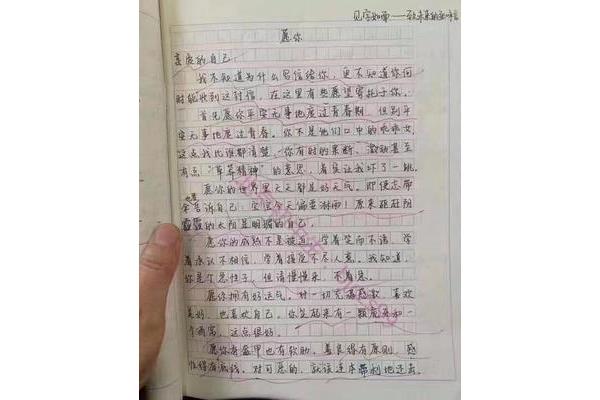 见字如面——致未来的
愿你
亲爱的自己：
我不知道为什么写信给你，更不知道你何
时能收到这封信，在这里有些愿望寄托于你。
首先愿你平安无事地度过青春期，但别平
安无事地度过青春。你不是他们口中的乖乖女，
这点我比谁都清楚。你有时的果断、激动甚至
有点“草莽精神”的意思，着实让我吓了一跳。
愿你的世界里天天都是好天气。即使乌云
告诉自己：宝宝今天偏要淋雨！原来
的太阳是明媚的自己。
愿你的成熟不是被迫，学着笑而不语，学
着承认不相信，学着接受不尽人意。我知道，
你是个急性子，但请慢慢来，不着急。
愿你拥有好运气。对一切充满感激，喜欢
美好，也喜欢自己。你笑起来有一颗虎牙和一
个酒窝，这点很好。
愿你有盔甲也有软肋，善良得有原则，感
性得有底线。对可恶的，就该连本带利地还击。